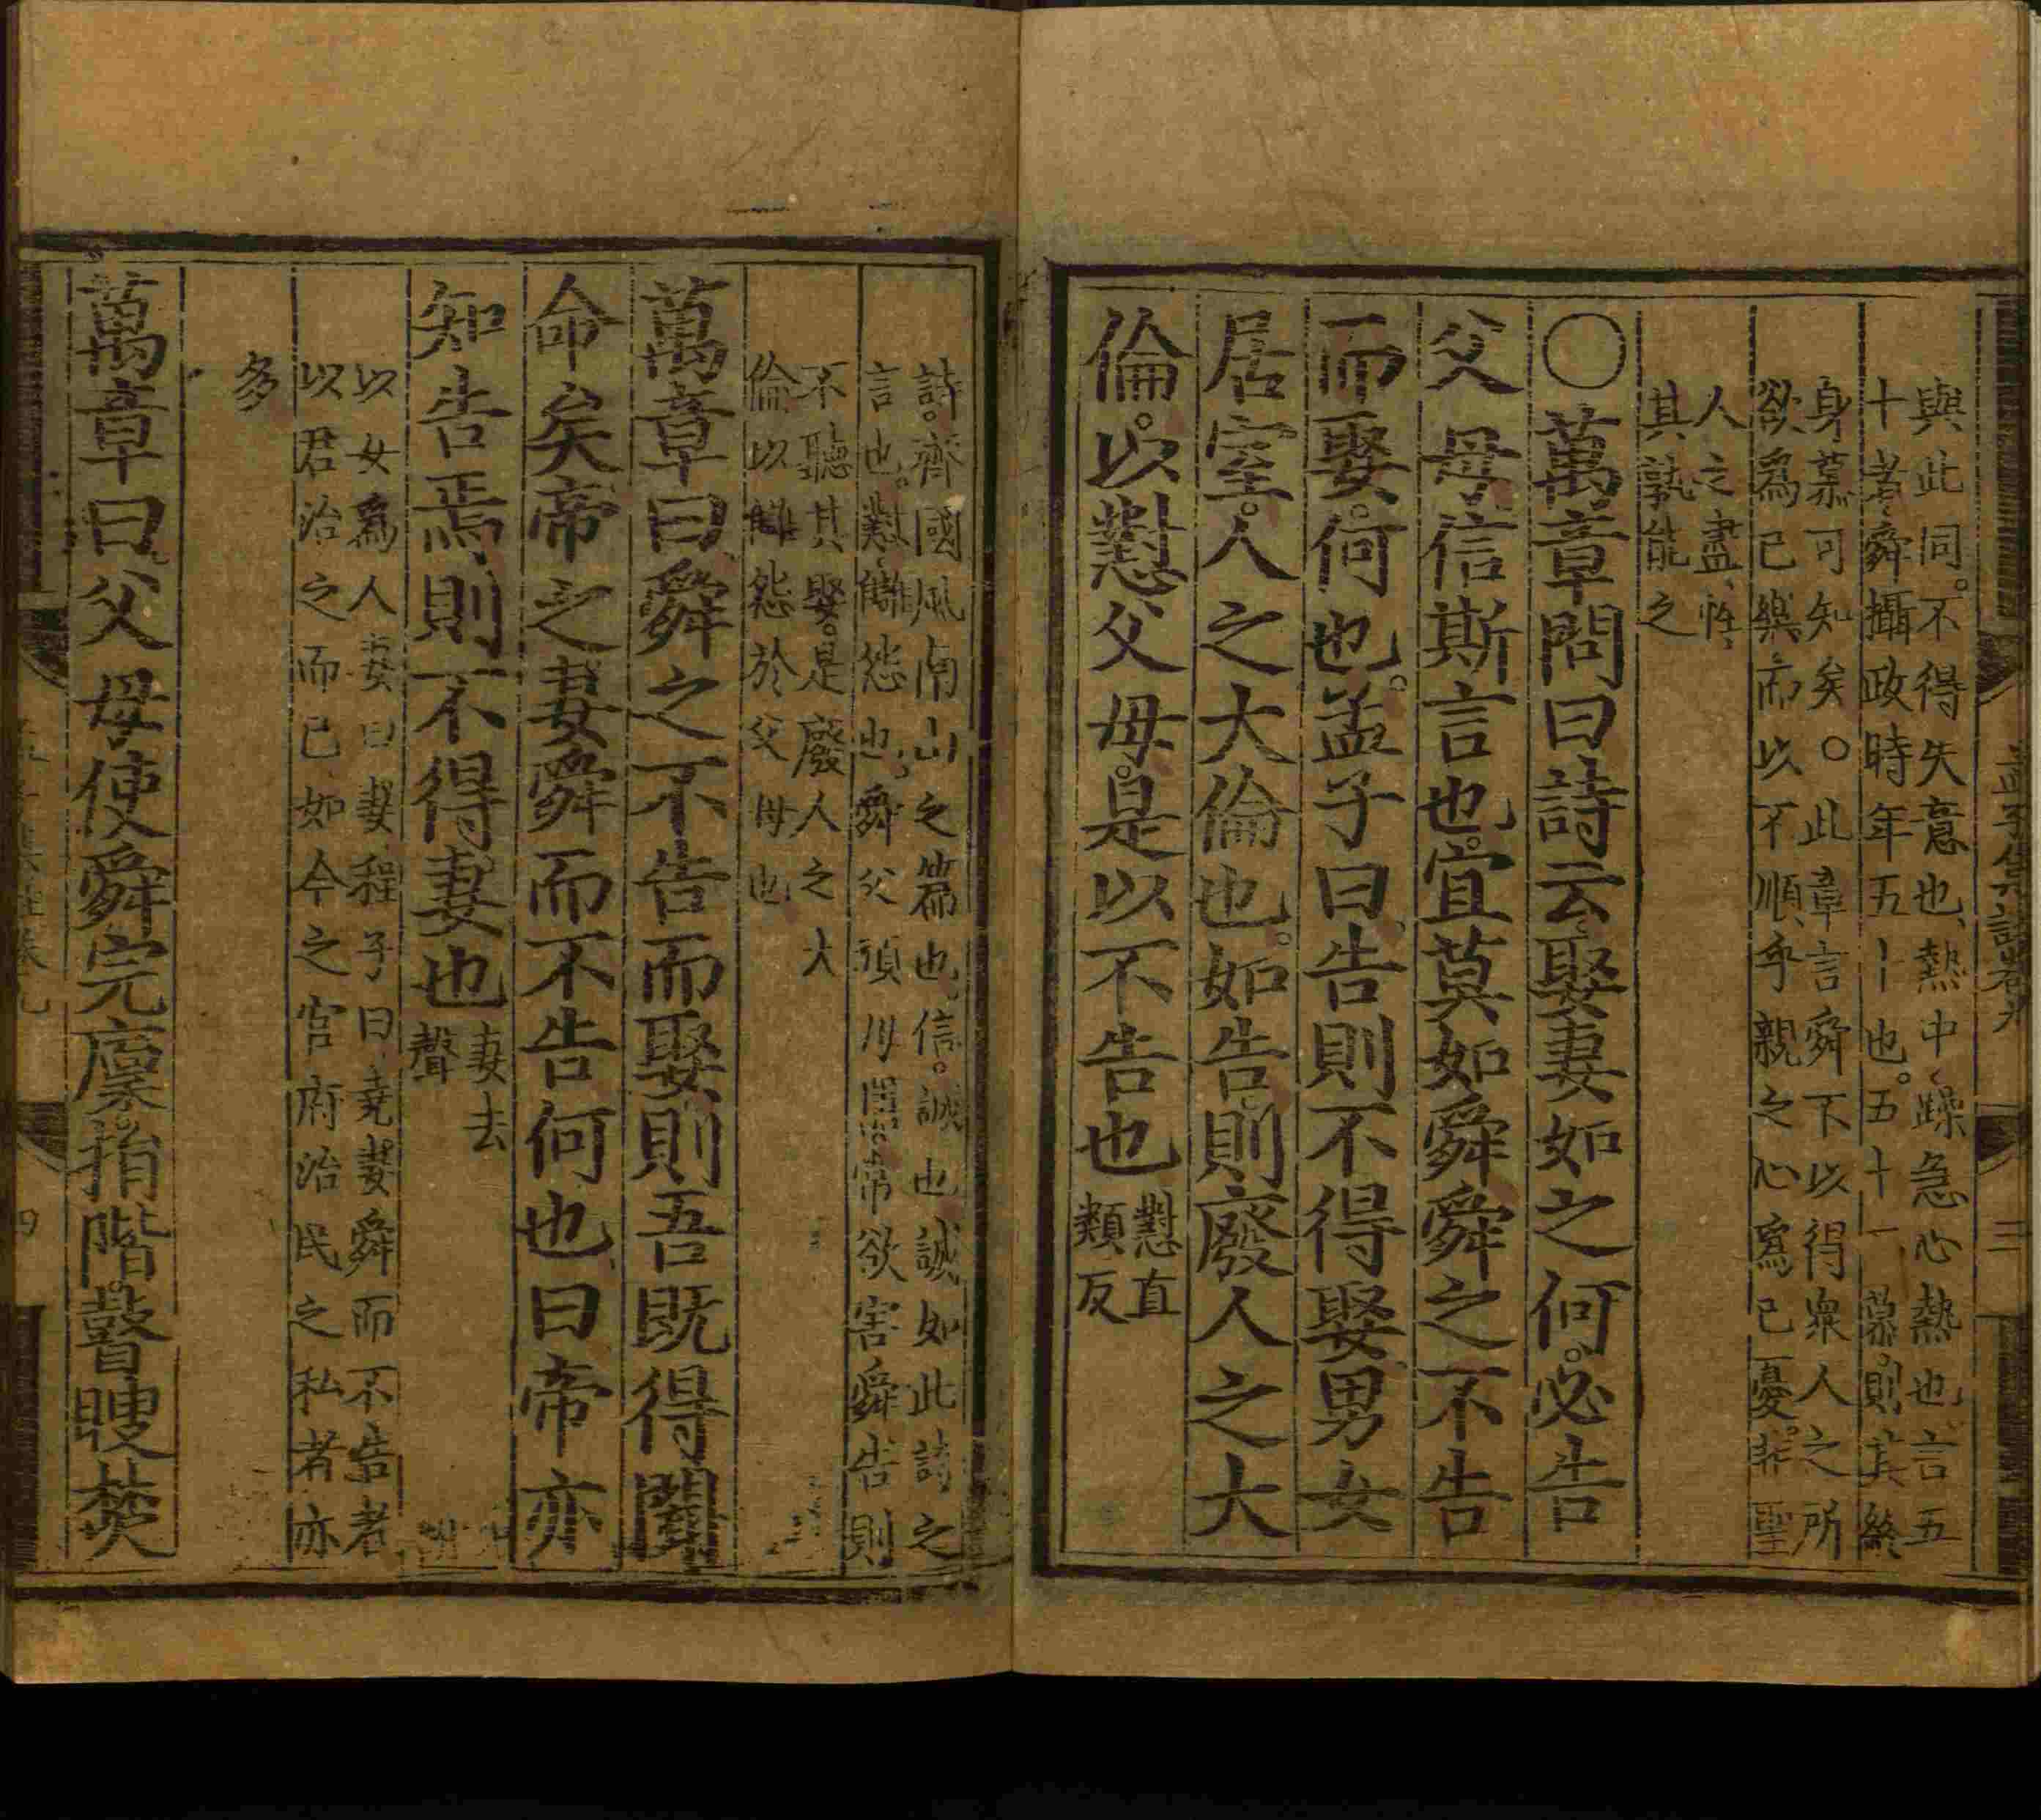 孟子集註卷九 三
與此同。不得失意也、熱中、躁急心熱也、言五
十者、舜攝政時年五十也。五十一慕。則其終
身慕可知矣〇此章言舜不以得衆人之所
欲爲己樂、而以不順乎親之心爲己憂。非聖
人之盡性、
其孰能之
〇萬章問曰詩云娶妻如之何。必告
父母信斯言也。宜莫如舜舜之不告
而娶。何也。孟子曰。告則不得娶男女
居室。人之大倫也。如告。則廢人之大
倫。以懟父母。是以不告也
懟直
類反
詩。齊國風南山之篇也、信。誠也誠如此詩之
言也。懟、讎怨也、舜父頑母嚚常欲害舜告則
不聽其娶。是廢人之大
倫以讎怨於父母也
萬章曰、舜之不告而娶則吾旣得聞
命矣帝之妻舜而不告何也曰帝亦
知告焉、則不得妻也
妻去
聲
以女爲人妻曰妻、程子曰、堯妻舜而不告者
以君治之而已如今之官府治民之私者亦
多
萬章曰、父母使舜完廩。捐階。瞽瞍焚
四